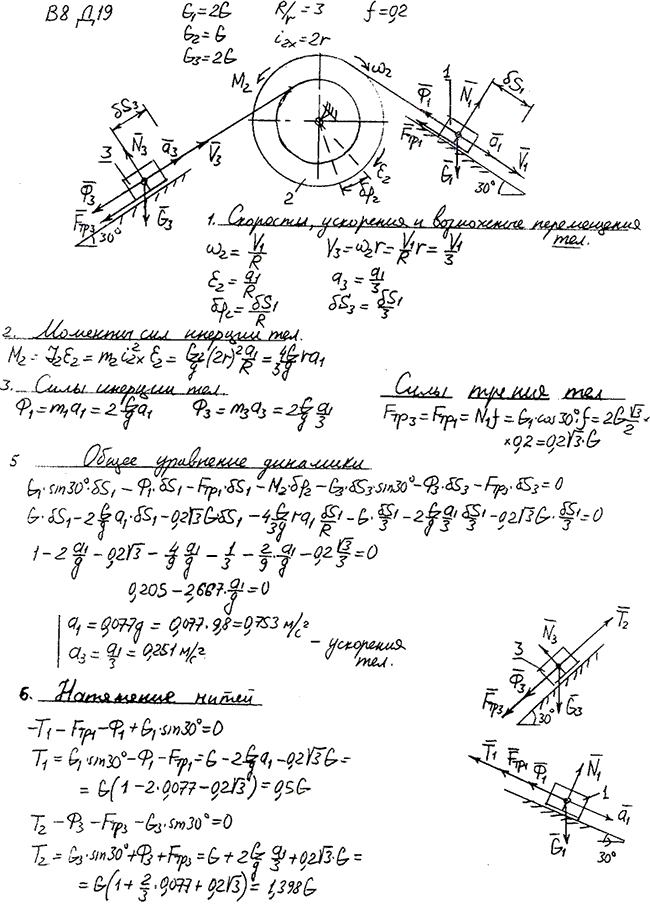 В8 Д19
G₁=2G R/r=3 f=0,2
G₂=G i₂ₓ=2r
G₃=2G
M₂ ω₂ 1 Φ̄₁ N̄₁ δS₁
δS₃ N̄₃ ā₃ V̄₃ F̄тр₁ ā₁ V̄₁
3 ε₂ Ḡ₁ 30°
Φ̄₃ F̄тр₃ Ḡ₃ 30° 2 δφ₂
1. Скорости, ускорения и возможные перемещения
тел.
ω₂=V₁/R V₃=ω₂r=V₁/R r=V₁/3
ε₂=a₁/R a₃=a₁/3
δφ₂=δS₁/R δS₃=δS₁/3
2. Моменты сил инерции тел.
M₂=J₂ε₂=m₂i²₂ₓε₂=G/g(2r)²a₁/R=4G/3g ra₁
3. Силы инерции тел Силы трения тел
Φ₁=m₁a₁=2G/g a₁ Φ₃=m₃a₃=2G/g a₁/3 Fтр₃=Fтр₁=N₁f=G₁·cos30°·f=2G√3/2×
×0,2=0,2√3·G
5 Общее уравнение динамики
G₁·sin30°·δS₁−Φ₁·δS₁−Fтр₁·δS₁−M₂·δφ₂−G₃·δS₃·sin30°−Φ₃·δS₃−Fтр₃·δS₃=0
G·δS₁−2G/g a₁·δS₁−0,2√3GδS₁−4G/3g ra₁ δS₁/R−G·δS₁/3−2G/g a₁/3·δS₁/3−0,2√3G·δS₁/3=0
1−2a₁/g−0,2√3−4/9 a₁/g−1/3−2/9·a₁/g−0,2√3/3=0
0,205−2,667·a₁/g=0
a₁=0,077g=0,077·9,8=0,753 м/с²
a₃=a₁/3=0,251 м/с² − ускорения
тел.
T̄₂ N̄₃ 3 Φ̄₃ F̄тр₃ 30° Ḡ₃
6. Натяжение нитей
−T₁−Fтр₁−Φ₁+G₁sin30°=0
T₁=G₁·sin30°−Φ₁−Fтр₁=G−2G/g a₁−0,2√3G=
=G(1−2·0,077−0,2√3)=0,5G
T̄₁ F̄тр₁ Φ̄₁ N̄₁ 1 ā₁ Ḡ₁ 30°
T₂−Φ₃−Fтр₃−G₃·sin30°=0
T₂=G₃·sin30°+Φ₃+Fтр₃=G+2G/g a₁/3+0,2√3·G=
=G(1+2/3·0,077+0,2√3)=1,398G